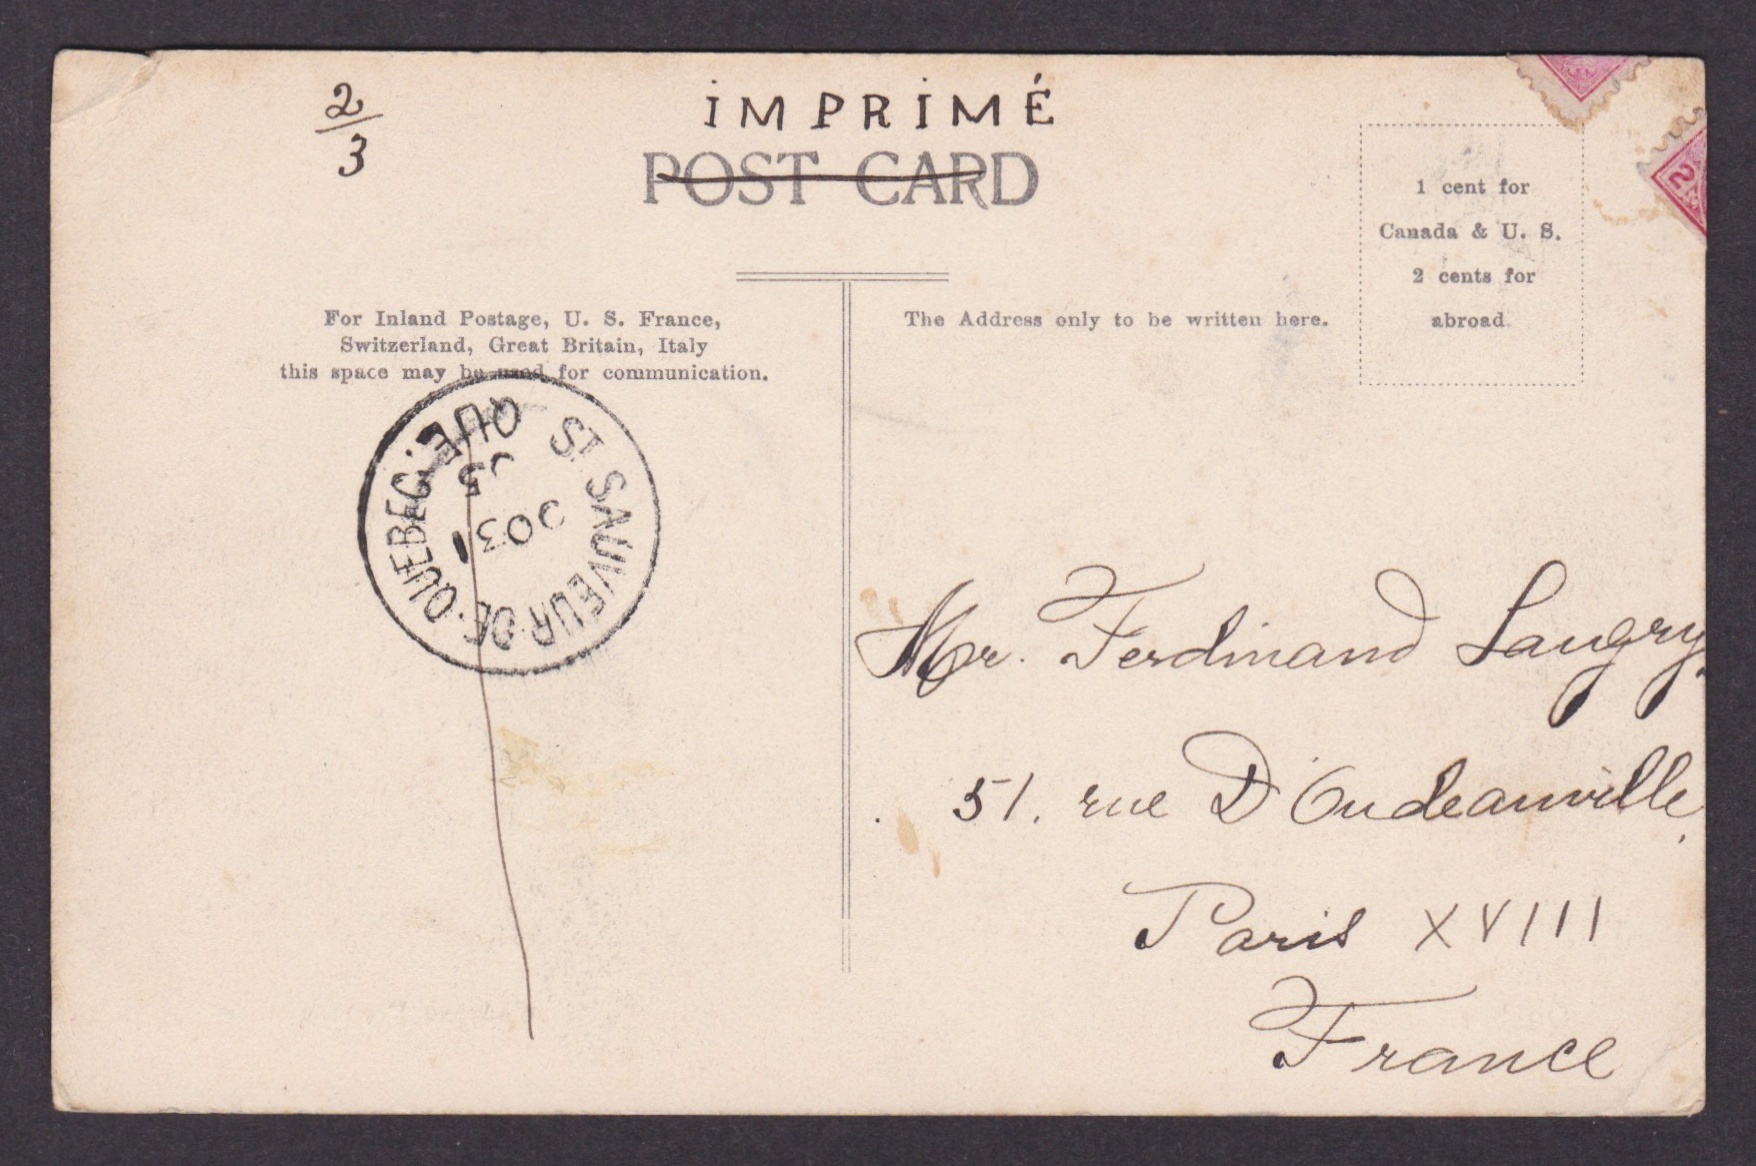 2/3
IMPRIMÉ
POST CARD
1 cent for
Canada & U. S.
2 cents for
abroad.
For Inland Postage, U. S. France,
Switzerland, Great Britain, Italy
this space may be used for communication.
The Address only to be written here.
ST SAUVEUR-DE-QUEBEC. QUE
Mr. Ferdinand Laugry.
51. rue D'Oudeauville.
Paris XVIII
France
2